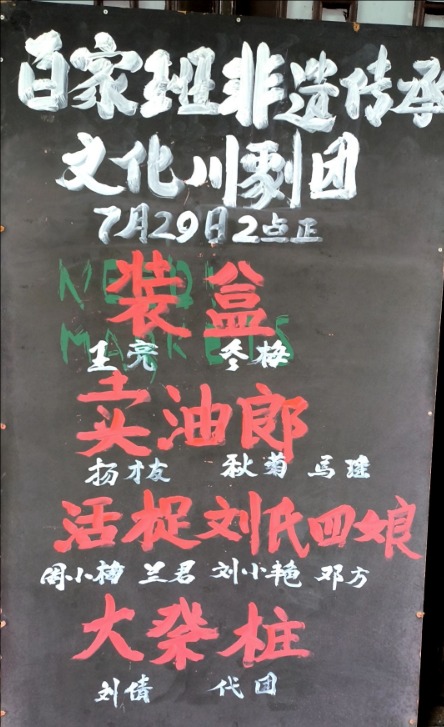 百家班非遗传承
文化川剧团
7月29日2点正
装盒
王亮 冬梅
卖油郎
扬才友 秋菊 马瑶
活捉刘氏四娘
周小梅 兰君 刘小艳 邓方
大柴桩
刘倩 代团